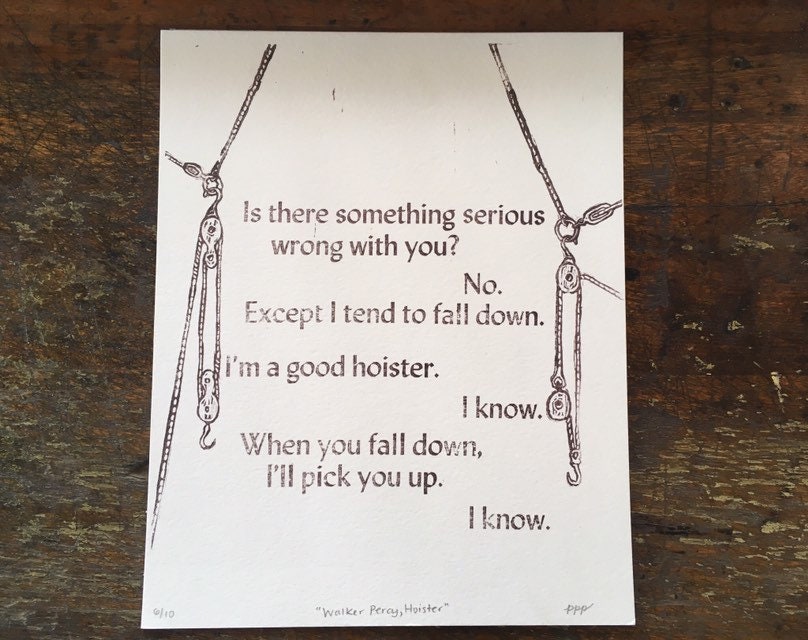 Is there something serious
wrong with you?
No.
Except I tend to fall down.
I'm a good hoister.
I know.
When you fall down,
I'll pick you up.
I know.
6/10 "Walker Percy, Hoister" PPP